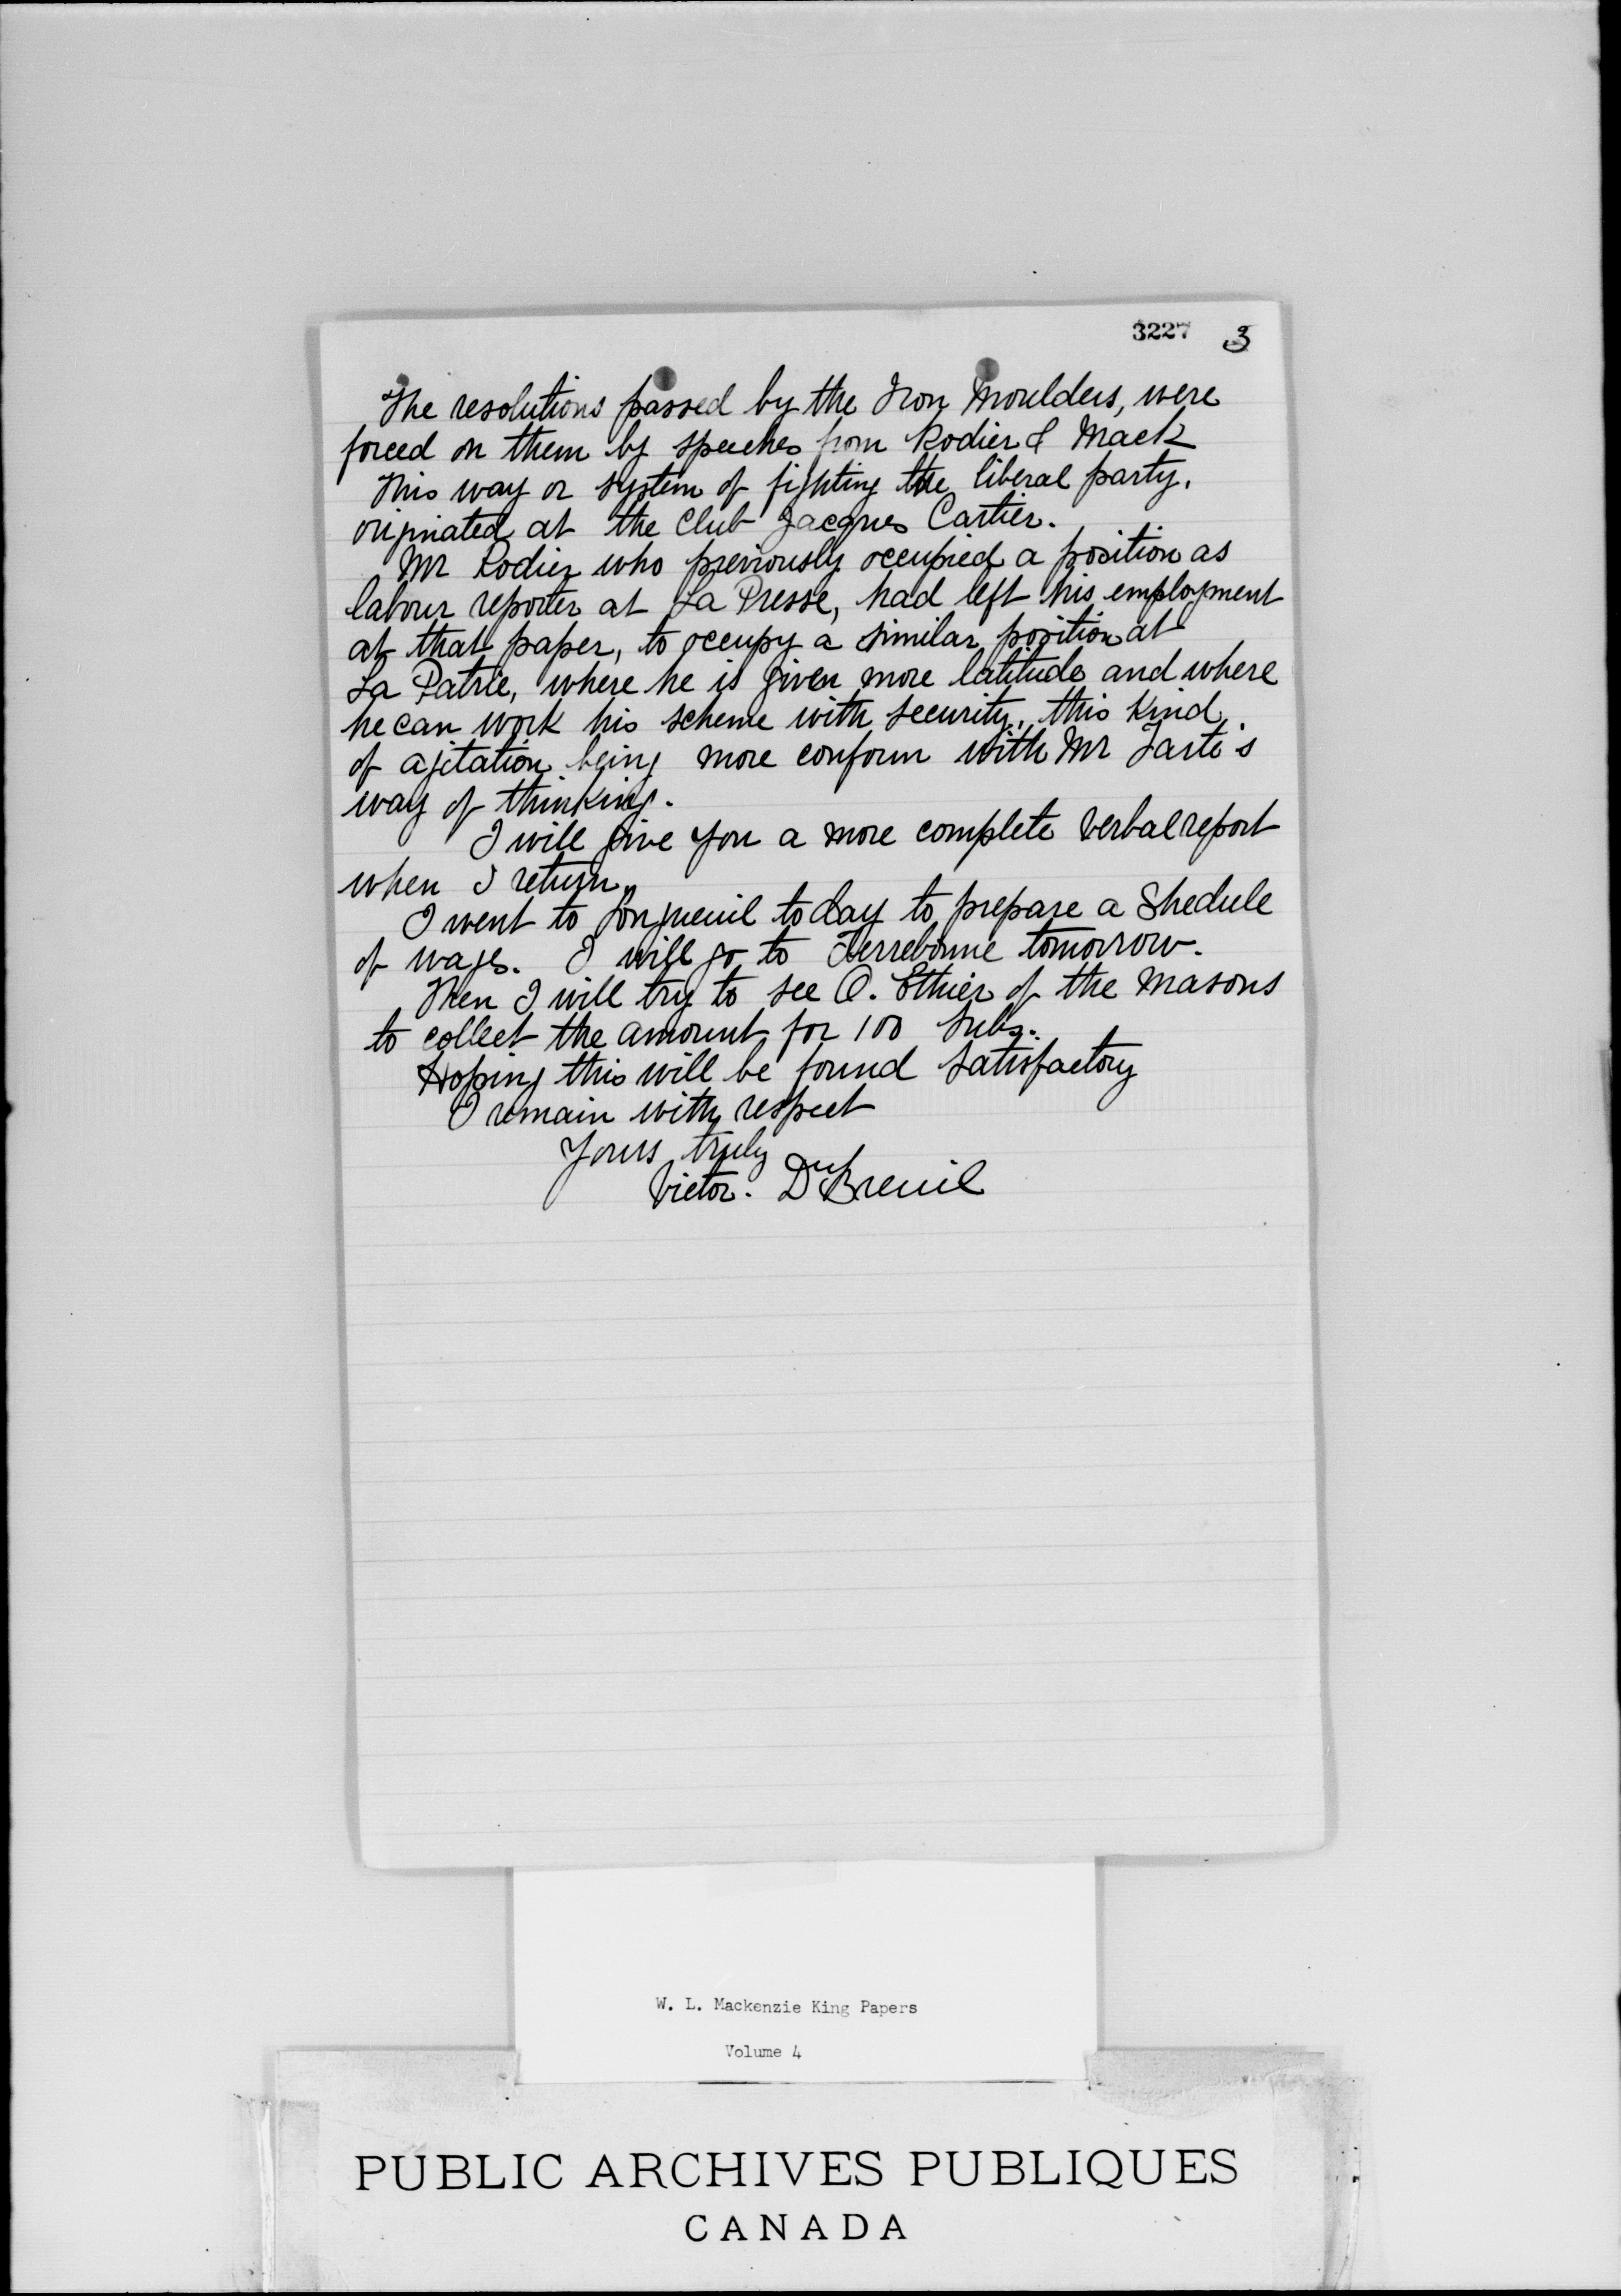 3227 3
The resolutions passed by the Iron Moulders, were
forced on them by speeches from Rodier & Mack
This way or system of fighting the liberal party,
originated at the Club Jacques Cartier.
Mr Rodier who previously occupied a position as
labour reporter at La Presse, had left his employment
at that paper, to occupy a similar position at
La Patrie, where he is given more latitude and where
he can work his scheme with security, this kind
of agitation being more conform with Mr Tarte's
way of thinking.
I will give you a more complete verbal report
when I return.
I went to Longueuil today to prepare a Shedule
of wages. I will go to Terrebonne tomorrow.
Then I will try to see O. Ethier of the Masons
to collect the amount for 100 subs.
Hoping this will be found satisfactory
I remain with respect
Yours truly
Victor. DuBreuil
W. L. Mackenzie King Papers
Volume 4
PUBLIC ARCHIVES PUBLIQUES
CANADA